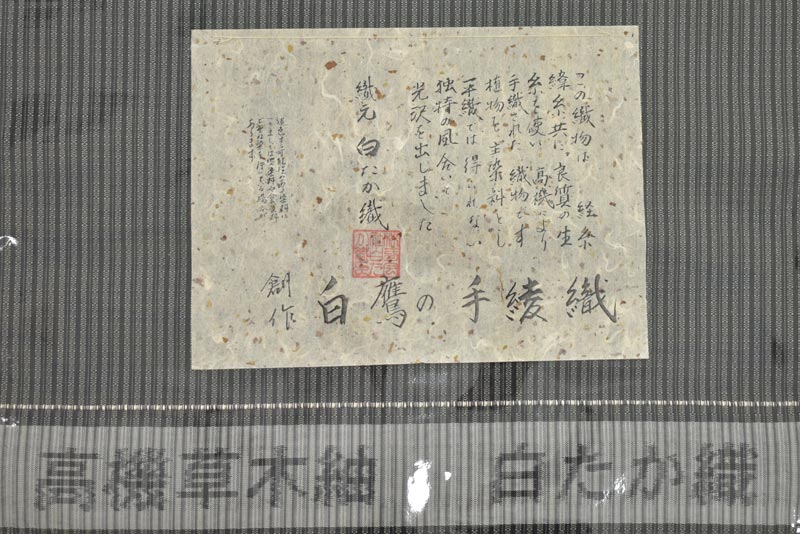 この織物は 経糸
緯糸共に、良質の生
糸を使い 高機により
手織された 織物です
植物を主染料とし
手織では得られない
独特の風合いで
光沢を出しました
織元 白たか織
創作 白鷹の 手綾織
高機草木紬 白たか織